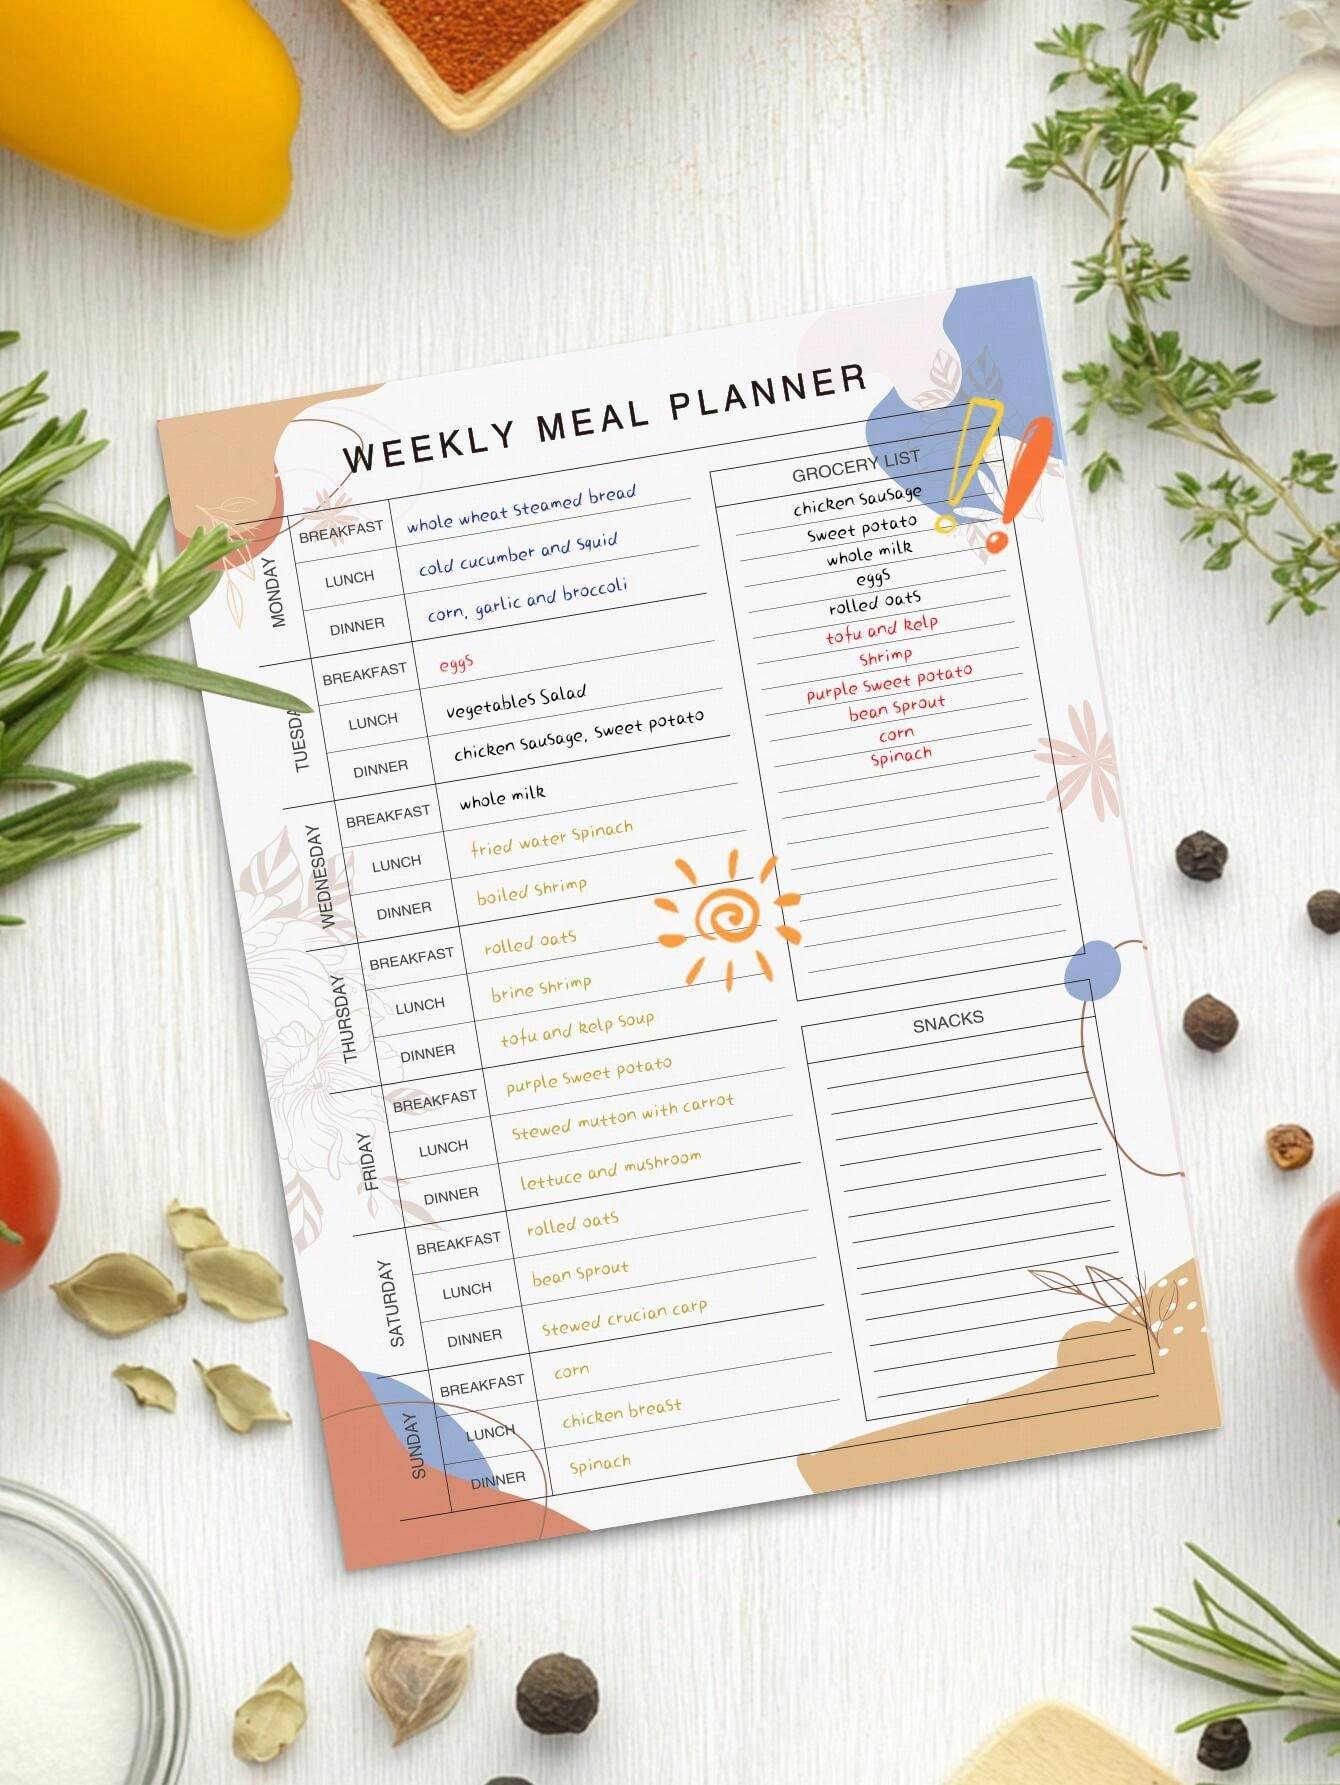 WEEKLY MEAL PLANNER
MONDAY
BREAKFAST whole wheat steamed bread
LUNCH cold cucumber and squid
DINNER corn, garlic and broccoli
TUESDA
BREAKFAST eggs
LUNCH vegetables salad
DINNER chicken sausage, sweet potato
WEDNESDAY
BREAKFAST whole milk
LUNCH fried water spinach
DINNER boiled shrimp
THURSDAY
BREAKFAST rolled oats
LUNCH brine shrimp
DINNER tofu and kelp soup
FRIDAY
BREAKFAST purple sweet potato
LUNCH stewed mutton with carrot
DINNER lettuce and mushroom
SATURDAY
BREAKFAST rolled oats
LUNCH bean sprout
DINNER stewed crucian carp
SUNDAY
BREAKFAST corn
LUNCH chicken breast
DINNER spinach
GROCERY LIST
chicken sausage
sweet potato
whole milk
eggs
rolled oats
tofu and kelp
shrimp
purple sweet potato
bean sprout
corn
spinach
SNACKS